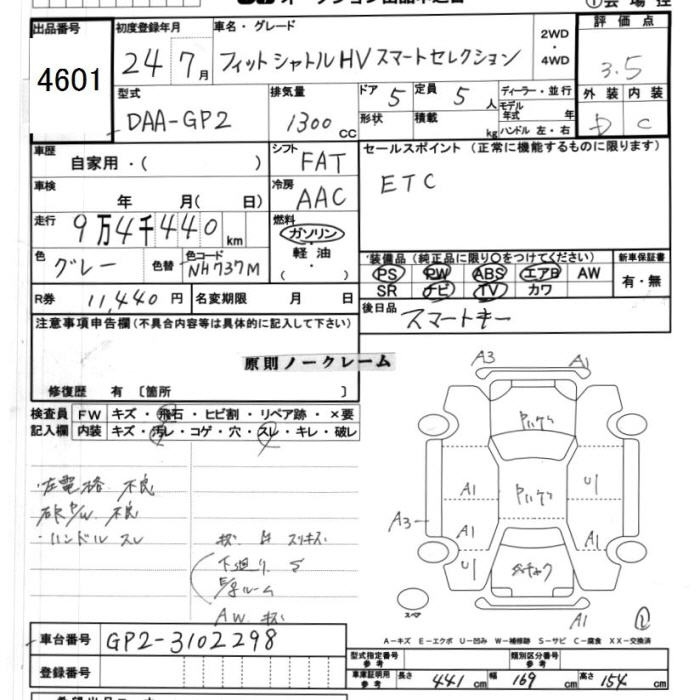 出品番号
4601
初度登録年月
24年 7月
車名・グレード
フィットシャトルHV スマートセレクション
2WD
・
4WD
評価点
3.5
外装 内装
D C
型式
DAA-GP2
排気量
1300 cc
ドア 5
定員 5人
形状
積載 kg
ディーラー・並行
モデル年式 年
ハンドル 左・右
車歴
自家用・( )
シフト
FAT
車検
年 月( 日)
冷房
AAC
走行
9万4千440km
燃料
ガソリン
・
軽油
・
( )
色
グレー
色替
色コード
NH737M
R券 11,440円
名変期限 月 日
セールスポイント(正常に機能するものに限ります)
ETC
装備品(純正品に限り○をつけてください)
PS PW ABS エアB AW
SR ナビ TV カワ
新車保証書
有・無
後日品
スマートキー
注意事項申告欄(不具合内容等は具体的に記入して下さい)
原則ノークレーム
修復歴 有〔箇所 〕
検査員記入欄
FW キズ・飛石・ヒビ割・リペア跡・×要
内装 キズ・汚レ・コゲ・穴・スレ・キレ・破レ
不良
不良
・ハンドル スレ
スリキズ
下廻り S
ルーム
AW
A3
A1
A1
U1
A3
A1
A1
U1
A1
スペア
A−キズ E−エクボ U−凹み W−補修跡 S−サビ C−腐食 XX−交換済
車台番号
GP2-3102298
登録番号
型式指定番号
参考
類別区分番号
参考
車庫証明用
参考
長さ 441cm
幅 169cm
高さ 154cm